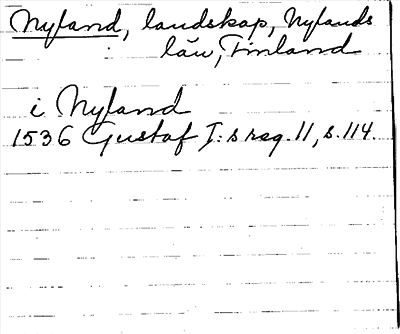 Nyland, landskap, Nylands
län, Finland
i Nyland
1536 Gustaf I:s reg. 11, s. 114.